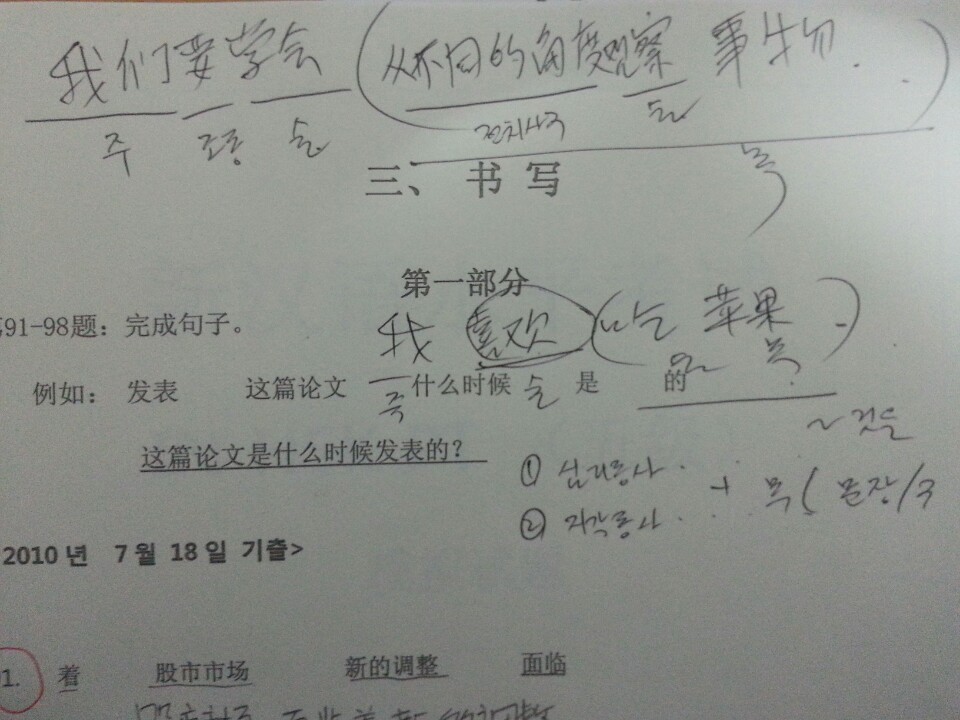 我们要学会(从不同的角度观察 事物.
주 조동 술 전치사구 술
목
三、 书 写
第一部分
第91-98题：完成句子。
我 喜欢 (吃 苹果.)
例如： 发表 这篇论文 什么时候 是 的
주 술 술 목
~것을
这篇论文是什么时候发表的？
① 심리동사. + 목 ( 문장/구
② 지각동사.
2010년 7월 18일 기출>
1. 着 股市市场 新的调整 面临